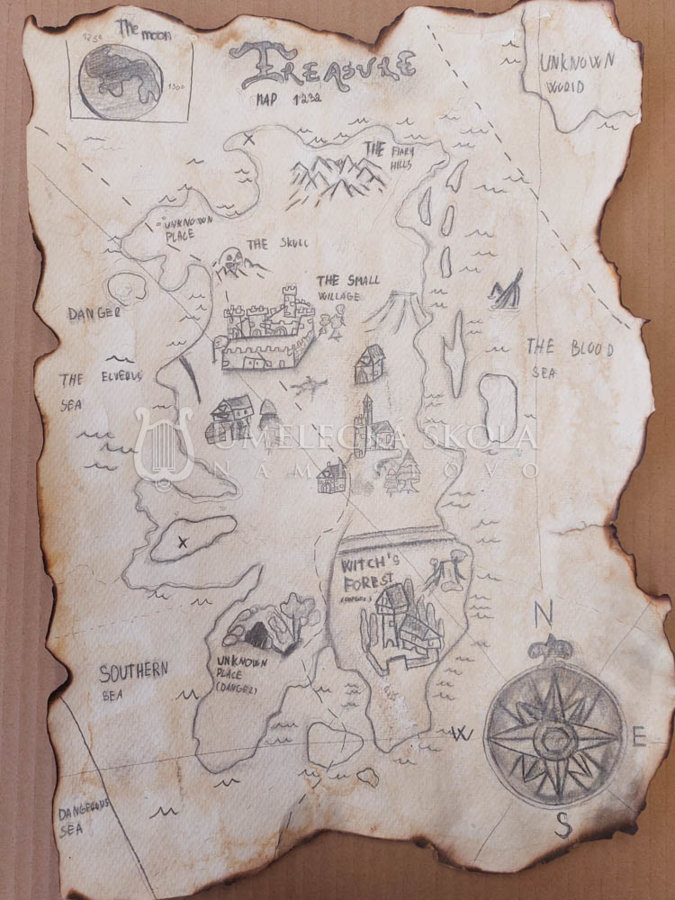 The moon
1250
1300
TREASURE
MAP 1232
UNKNOWN
WORLD
THE FIARY
HILLS
UNKNOWN
PLACE
THE SKULL
THE SMALL
VILLAGE
DANGER
THE BLOOD
SEA
THE ELVERUS
SEA
X
X
UMELECKÁ ŠKOLA
NÁMESTOVO
WITCH'S
FOREST
(DANGER)
UNKNOWN
PLACE
(DANGER)
SOUTHERN
SEA
DANGEROUS
SEA
N
W
E
S